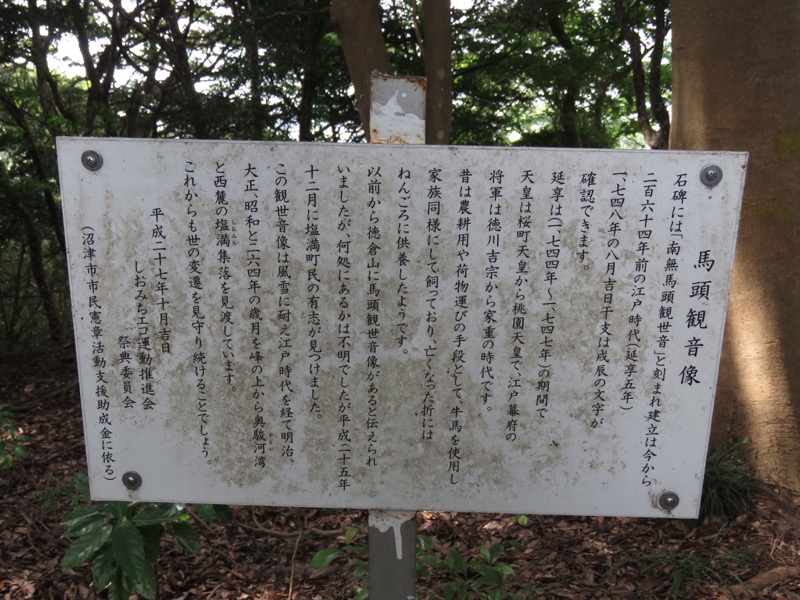 馬頭観音像
石碑には「南無馬頭観世音」と刻まれ建立は今から
二百六十四年前の江戸時代(延享五年)
一、七四八年の八月吉日干支は戌辰の文字が
確認できます。
延享は(一、七四四年~一、七四七年)の期間で
天皇は桜町天皇から桃園天皇で、江戸幕府の
将軍は徳川吉宗から家重の時代です。
昔は農耕用や荷物運びの手段として、牛馬を使用し
家族同様にして飼っており、亡くなった折には
ねんごろに供養したようです。
以前から徳倉山に馬頭観世音像があると伝えられ
いましたが、何処にあるかは不明でしたが平成二十五年
十二月に塩満町民の有志が見つけました。
この観世音像は風雪に耐え江戸時代を経て明治、
大正、昭和と二六四年の歳月を峰の上から奥駿河湾
と西麓の塩満集落を見渡しています。
これからも世の変遷を見守り続けることでしょう。
平成二十七年十月吉日
しおみちエコ運動推進会
祭典委員会
(沼津市市民憲章活動支援助成金に依る)